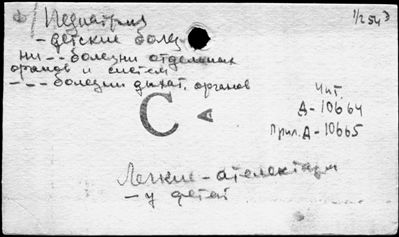 Педиатрия
1/254³
- детские болез
ни - - болезни отдельных
органов и систем
- - - болезни дыхат. органов
Чит.
А-10664
Прил. А-10665
С А
Легкие - ателектазы
- у детей